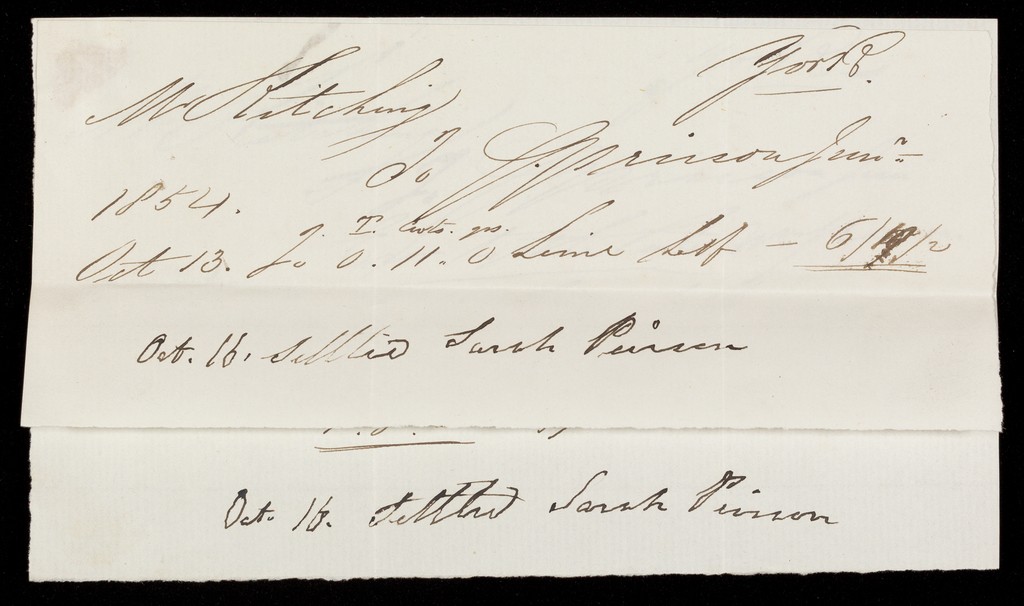 York
Mr Kitching
To J. Peirson Junr
1854.
T. Cwts. qrs.
Oct 13. To 0. 11. 0 Lime Self - 6/ /2
Oct. 16. Settled Sarah Peirson
Oct. 16. Settled Sarah Peirson